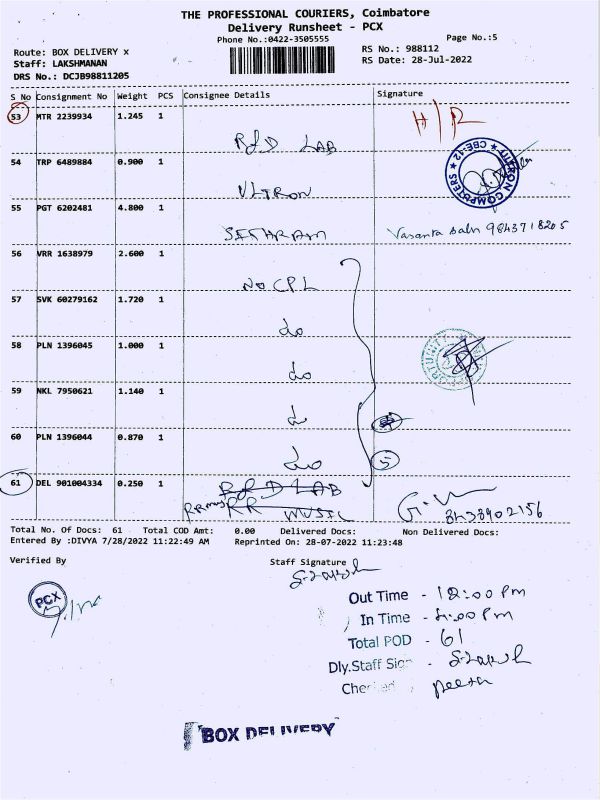 THE PROFESSIONAL COURIERS, Coimbatore
Delivery Runsheet - PCX
Phone No.:0422-3505555
Page No.:5
Route: BOX DELIVERY x
RS No.: 988112
Staff: LAKSHMANAN
RS Date: 28-Jul-2022
DRS No.: DCJB98811205
S No Consignment No Weight PCS Consignee Details Signature
53 MTR 2239934 1.245 1
H/R
R&D LAB
54 TRP 6489884 0.900 1
ULTRON
55 PGT 6202481 4.800 1
SETHARAM
Vasanta 9843718205
56 VRR 1638979 2.600 1
NO CPL
57 SVK 60279162 1.720 1
do
58 PLN 1396045 1.000 1
do
59 NKL 7950621 1.140 1
do
60 PLN 1396044 0.870 1
do
5
61 DEL 901004334 0.250 1
R&D LAB
RR MUSIC
8438902156
Total No. Of Docs: 61 Total COD Amt: 0.00 Delivered Docs: Non Delivered Docs:
Entered By :DIVYA 7/28/2022 11:22:49 AM Reprinted On: 28-07-2022 11:23:48
Verified By
Staff Signature
PCX
Out Time - 12:00 Pm
In Time - 4:00 Pm
Total POD - 61
Dly.Staff Sign -
BOX DELIVERY